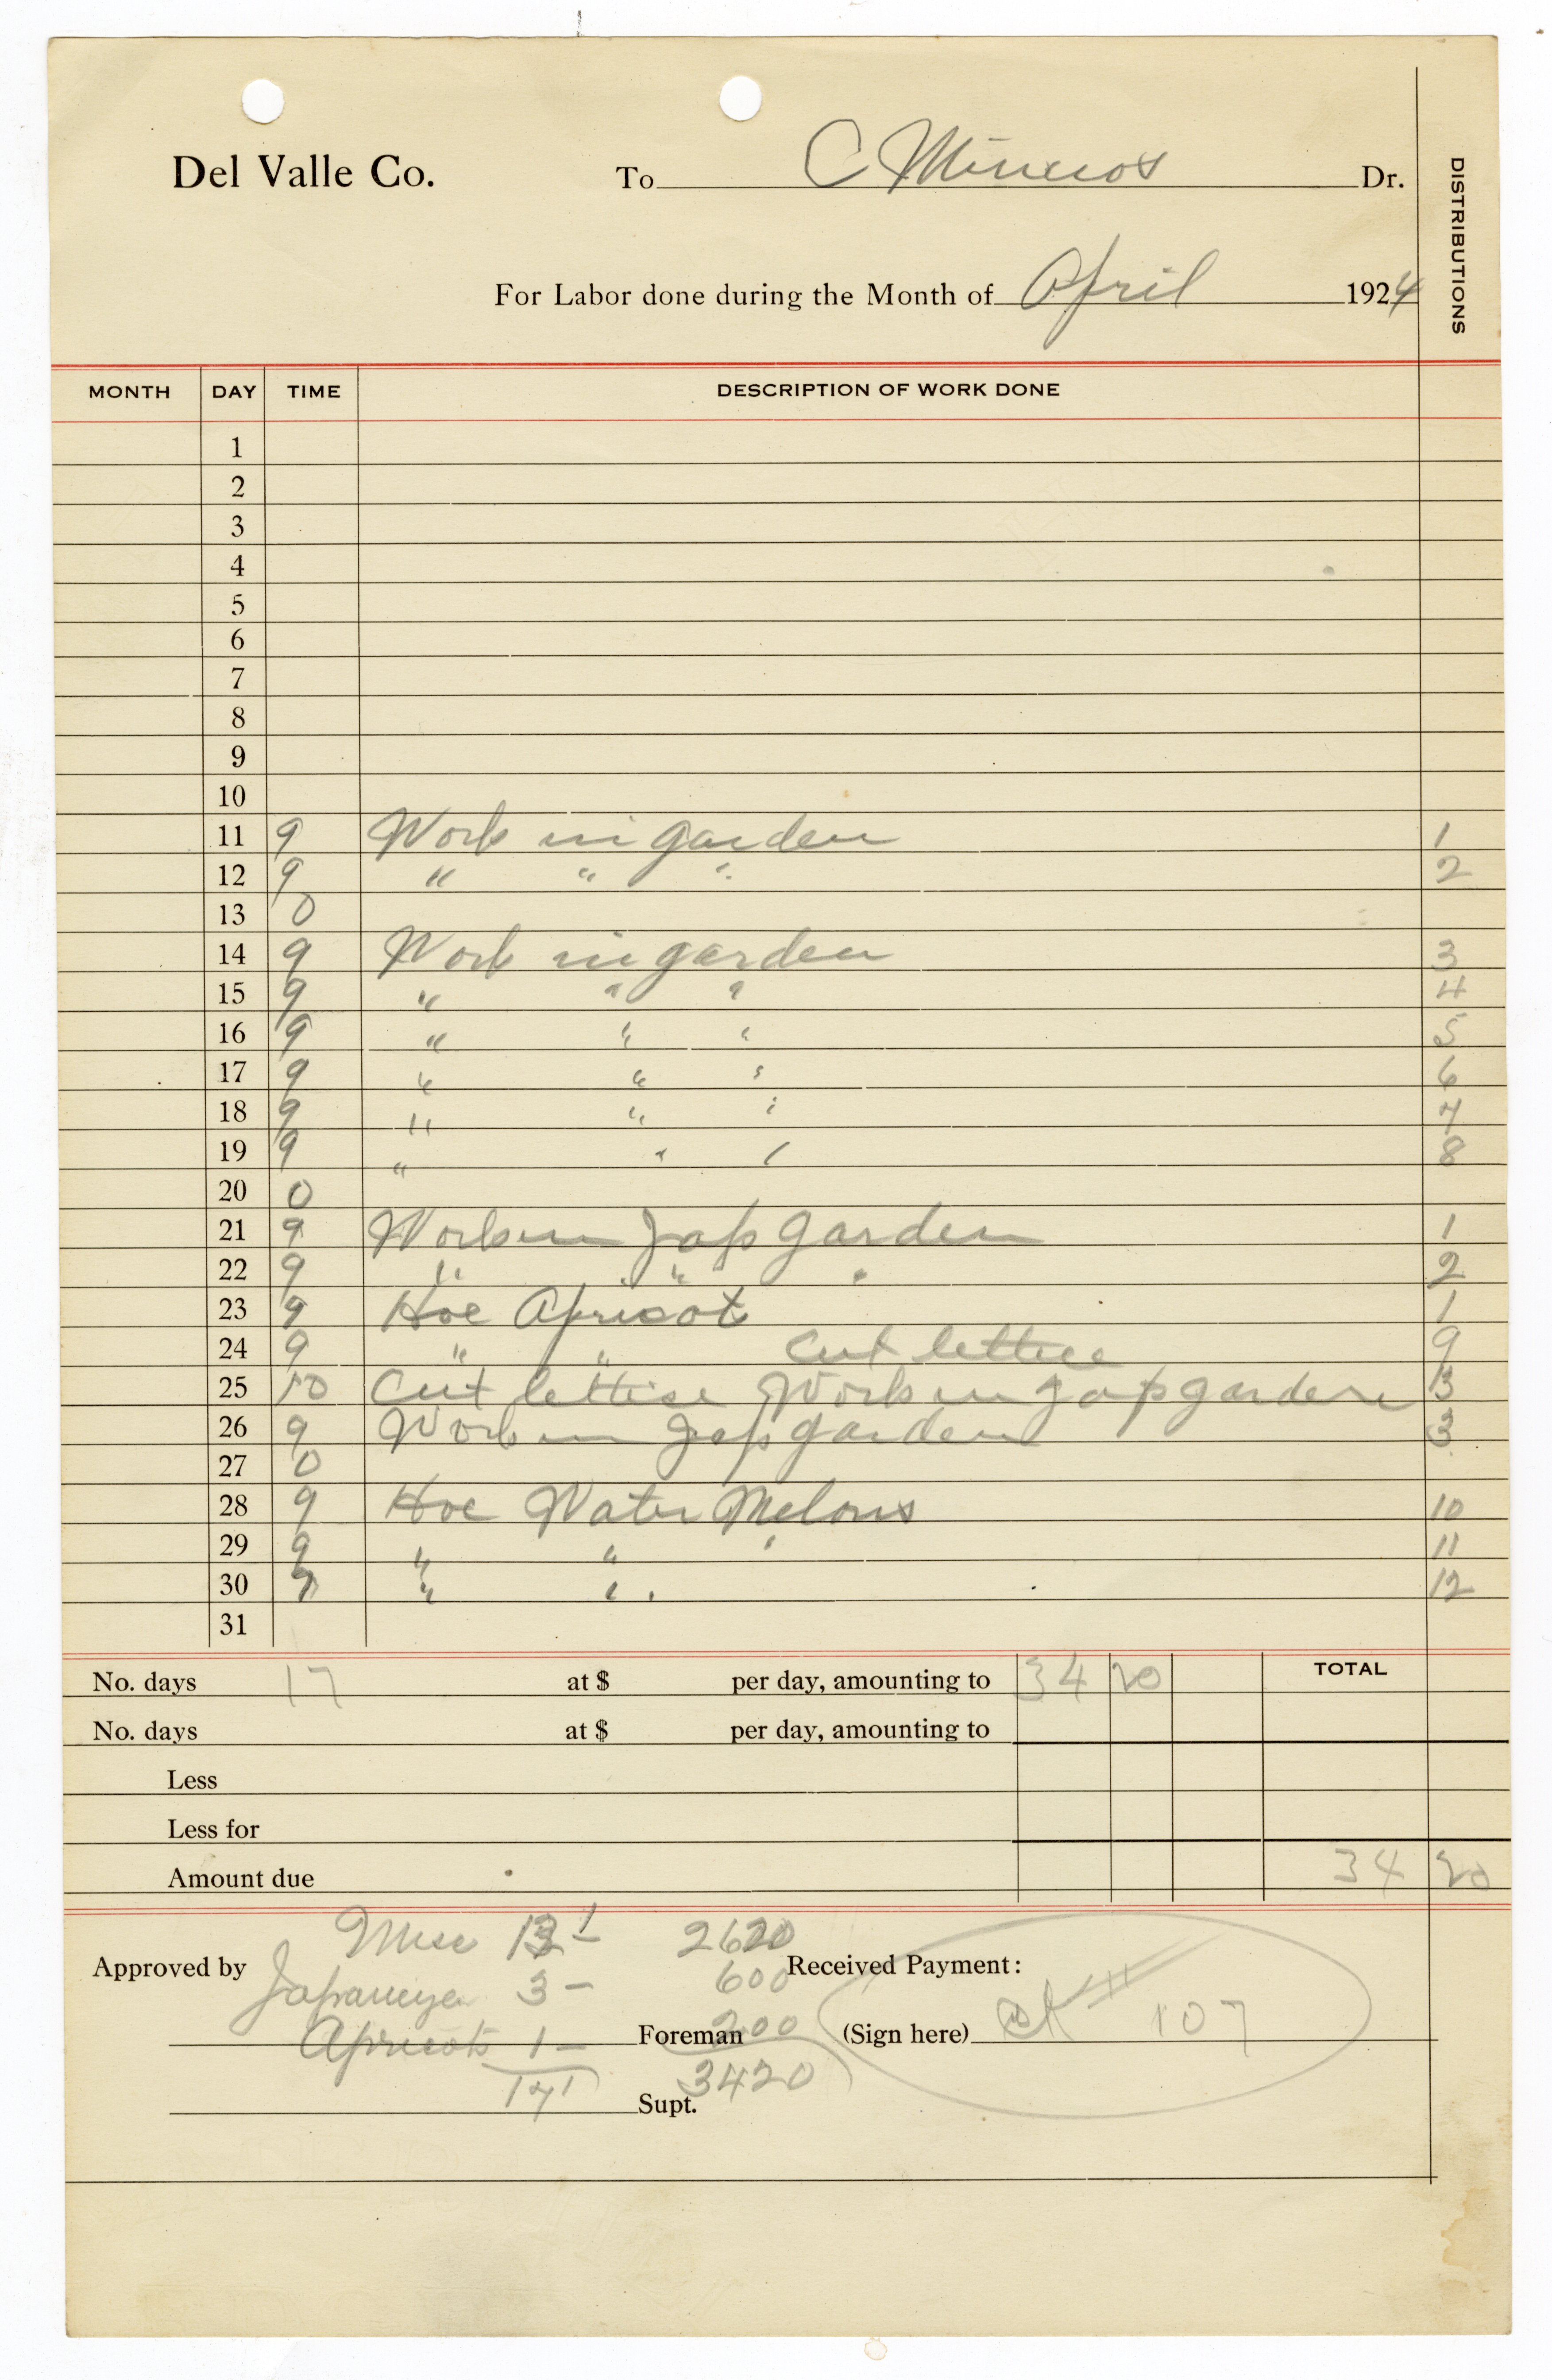 Del Valle Co. To C Mineros Dr.
DISTRIBUTIONS
For Labor done during the Month of April 1924
MONTH DAY TIME DESCRIPTION OF WORK DONE
1
2
3
4
5
6
7
8
9
10
11 9 Work in garden 1
12 9 " " " 2
13 0
14 9 Work in garden 3
15 9 " " " 4
16 9 " " " 5
17 9 " " " 6
18 9 " " " 7
19 9 " " " 8
20 0
21 9 Work in Jap garden 1
22 9 " " " 2
23 9 Hoe Apricot 1
24 9 " " Cut lettice 9
25 10 Cut lettise Work in Jap garden 13
26 9 Work in Jap garden 3
27 0
28 9 Hoe Water Melons 10
29 9 " " " 11
30 9 " " " 12
31
No. days 17 at $ per day, amounting to 34 20 TOTAL
No. days at $ per day, amounting to
Less
Less for
Amount due 34 20
Misc 13 1 - 2620
Approved by Received Payment:
3 - 600
Apricots 1 - Foreman 200 (Sign here) ck 107
17 1 3420
Supt.